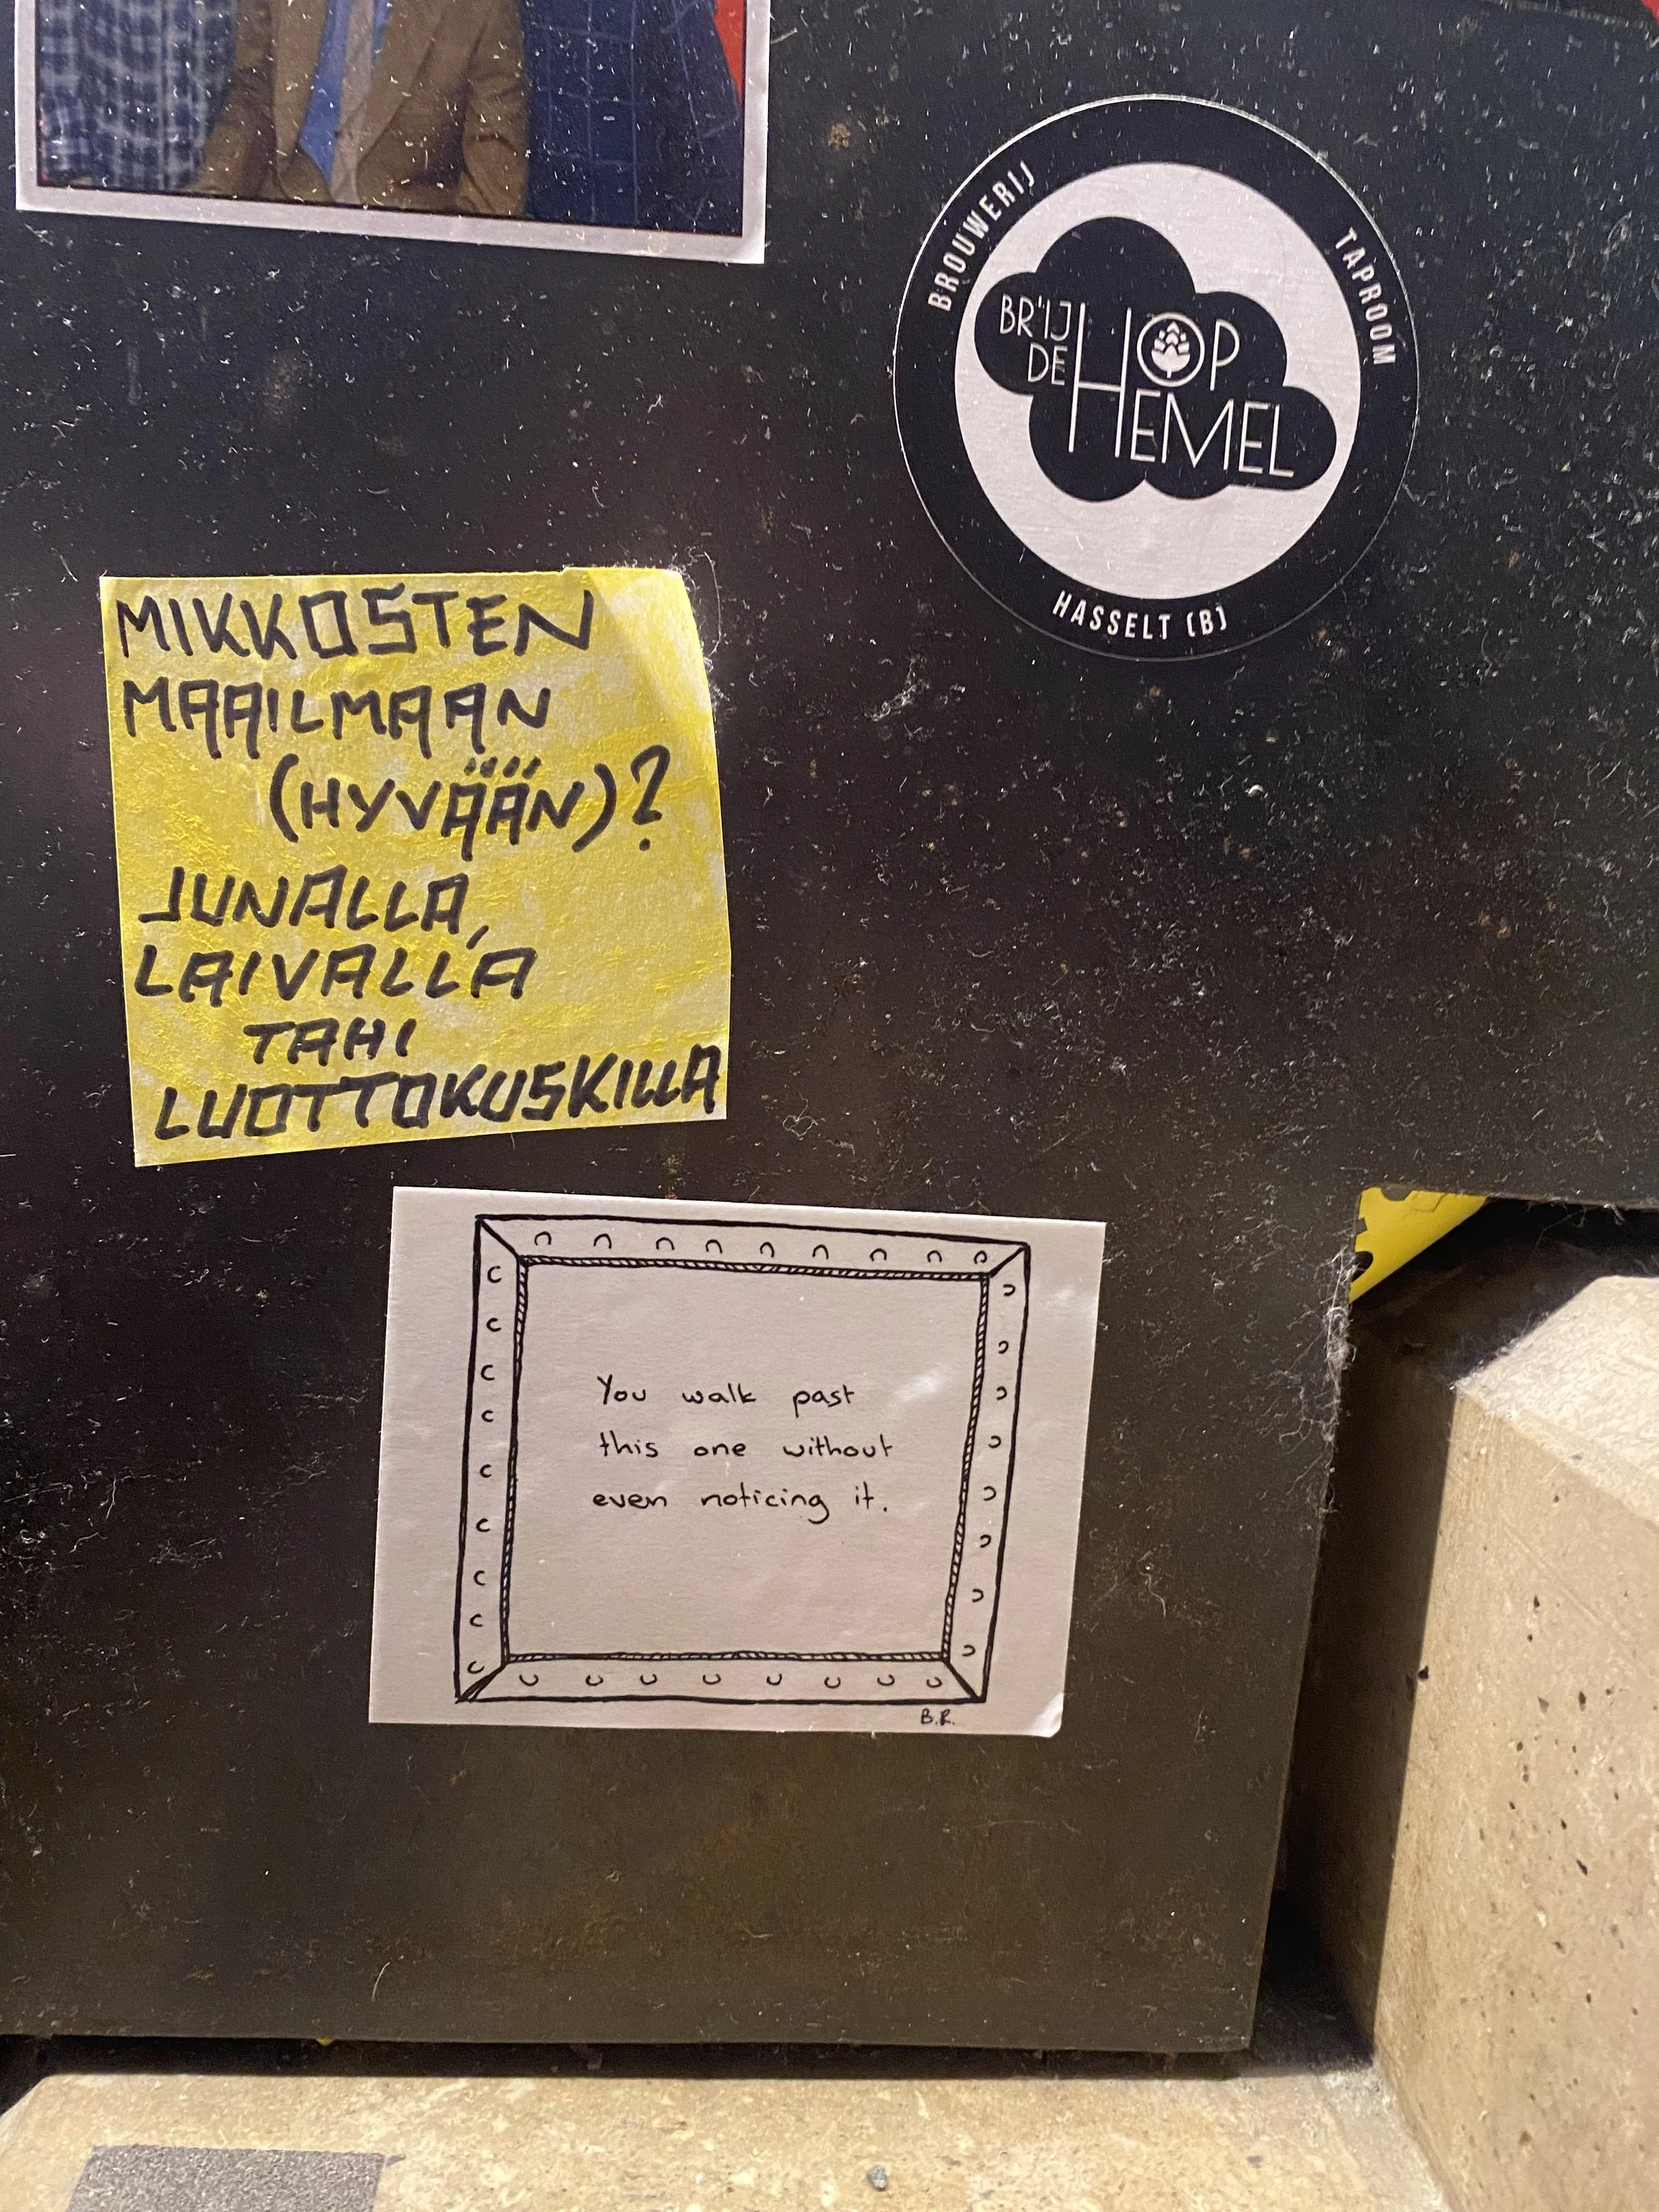 BROUWERIJ
TAPROOM
BR'IJ
DE
HOP
HEMEL
HASSELT (B)
MIKKOSTEN
MAAILMAAN
(HYVÄÄN)?
JUNALLA,
LAIVALLA
TAHI
LUOTTOKUSKILLA
You walk past
this one without
even noticing it.
B.R.